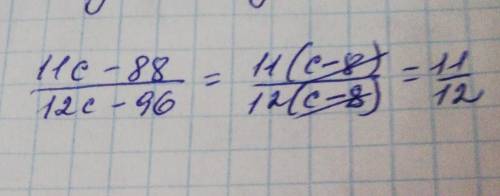 (11c - 88)/(12c - 96) = (11(c-8))/(12(c-8)) = 11/12